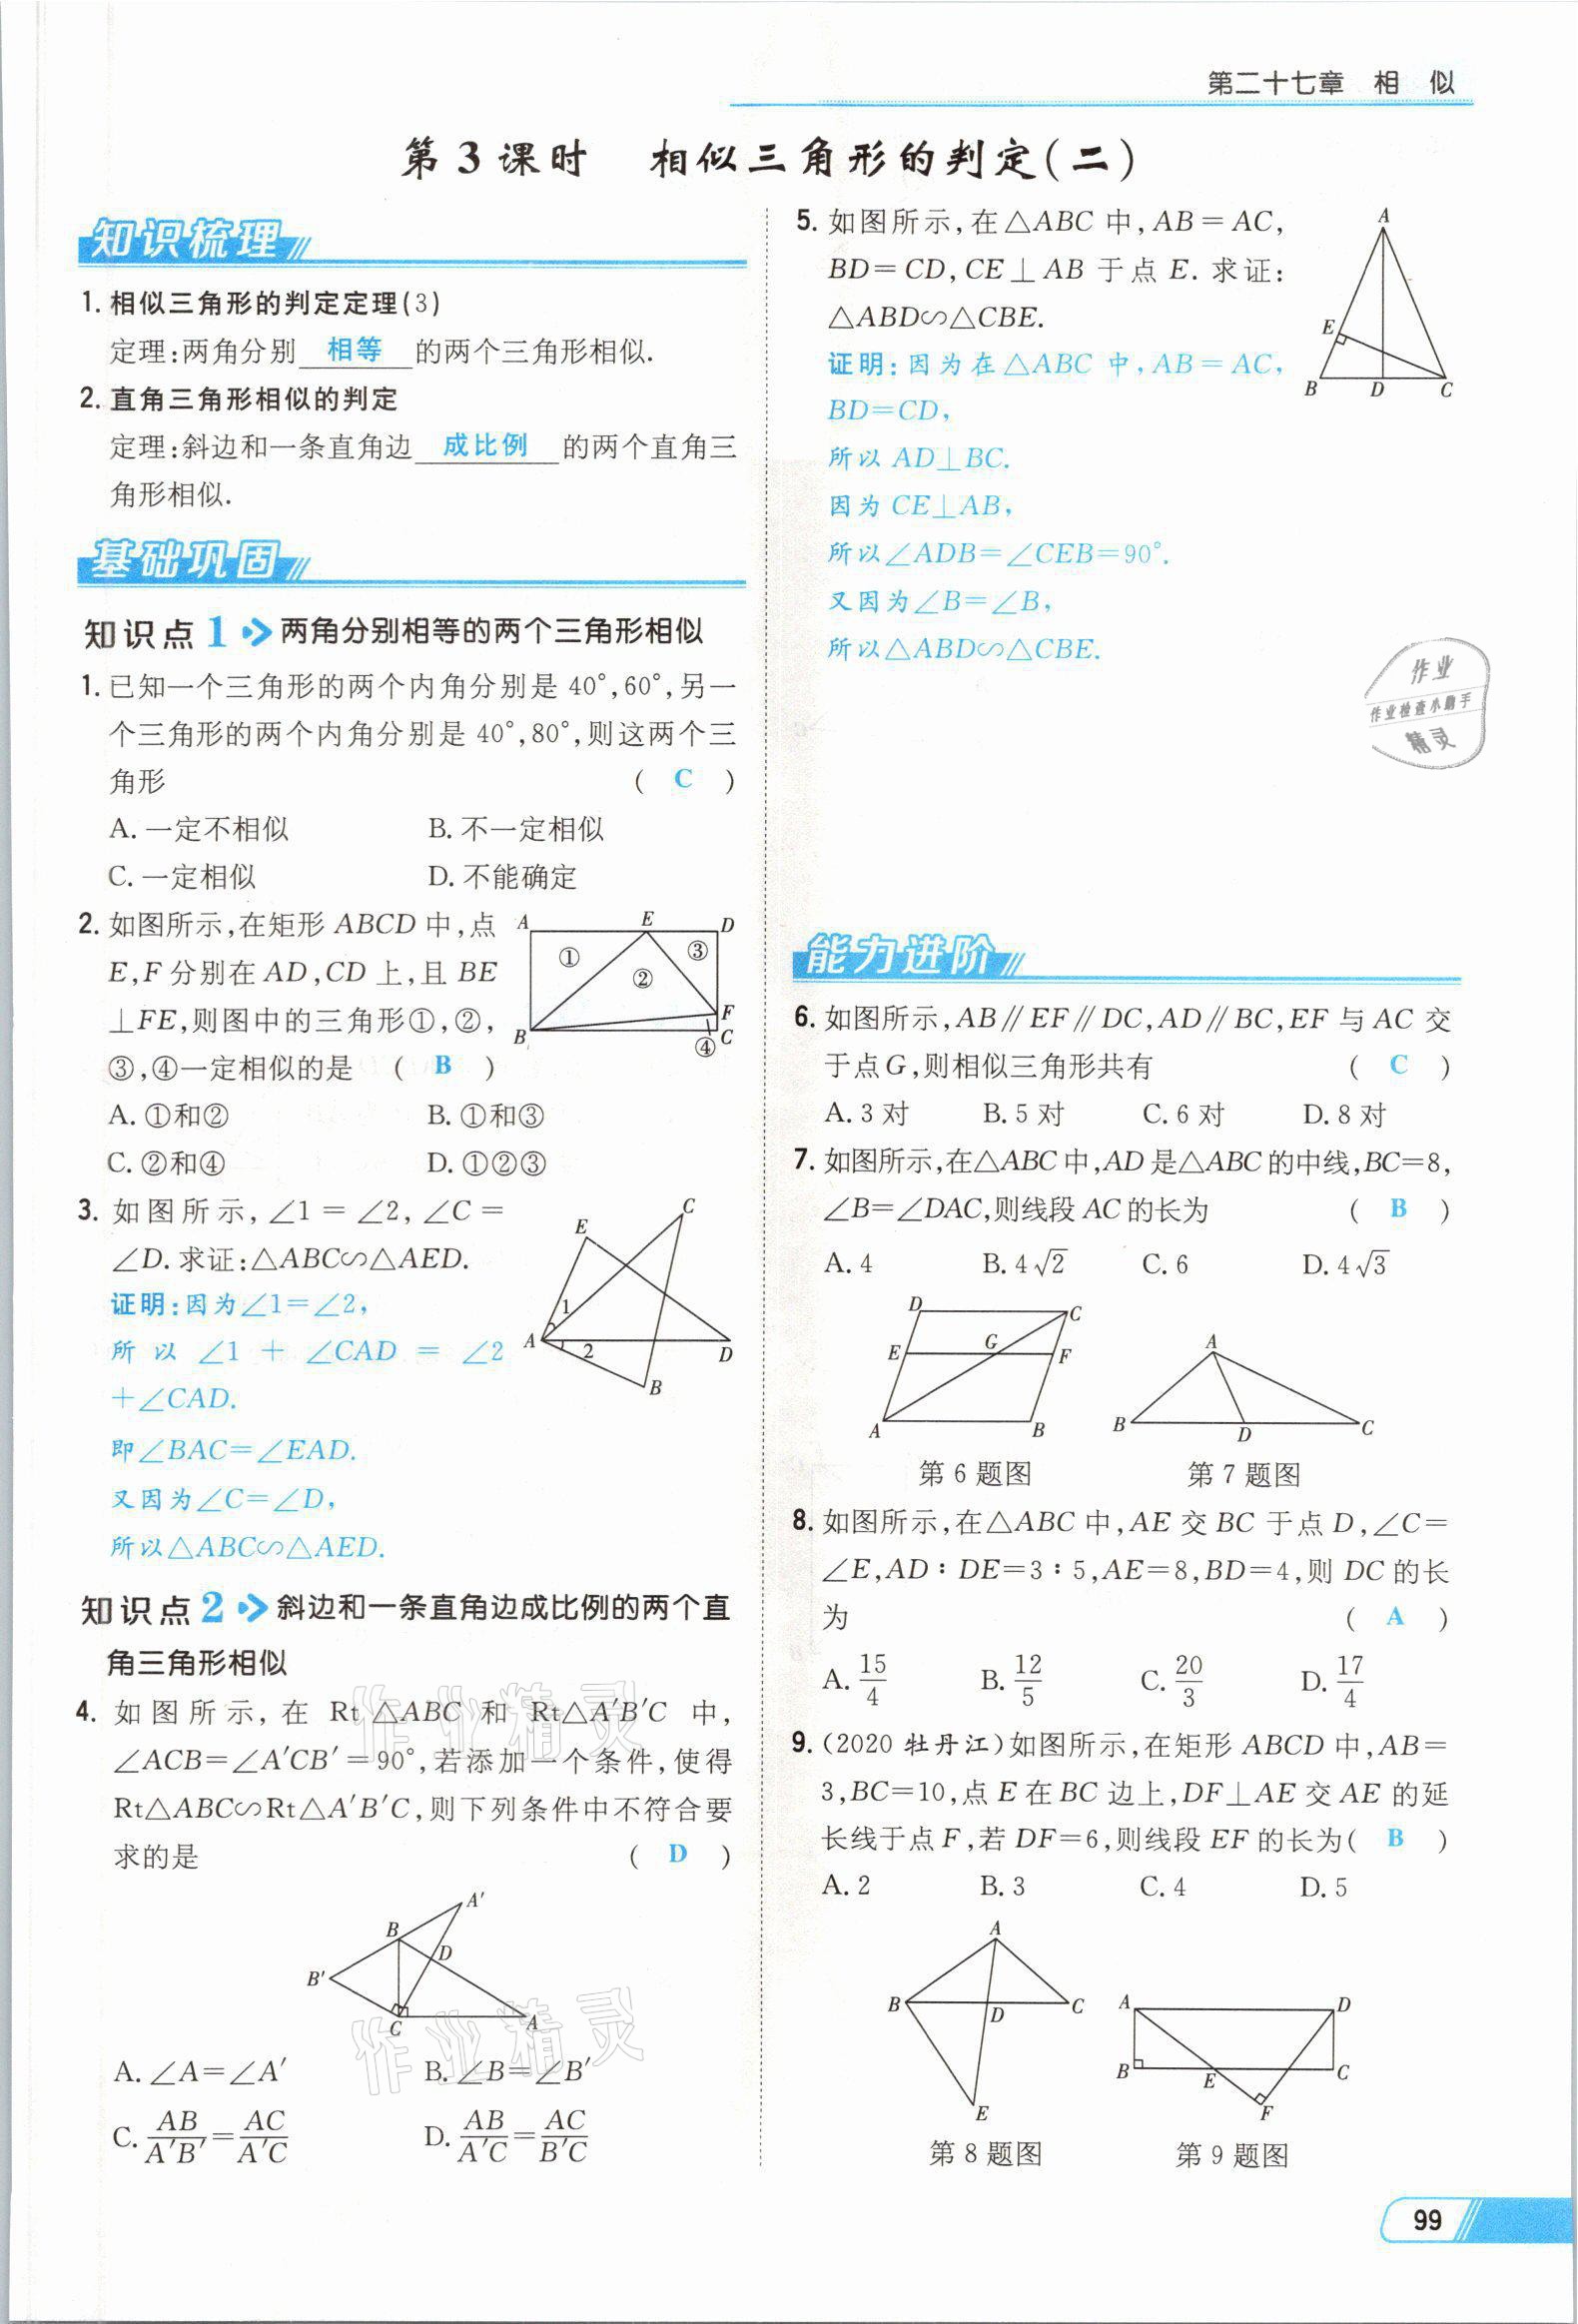 第二十七章 相 似
第3课时 相似三角形的判定(二)
知识梳理
1. 相似三角形的判定定理(3)
定理:两角分别 相等 的两个三角形相似.
2. 直角三角形相似的判定
定理:斜边和一条直角边 成比例 的两个直角三
角形相似.
基础巩固
知识点1 两角分别相等的两个三角形相似
1. 已知一个三角形的两个内角分别是 40°,60°,另一
个三角形的两个内角分别是 40°,80°,则这两个三
角形 ( C )
A. 一定不相似 B. 不一定相似
C. 一定相似 D. 不能确定
2. 如图所示,在矩形 ABCD 中,点
E,F 分别在 AD,CD 上,且 BE
⊥FE,则图中的三角形①,②,
③,④一定相似的是 ( B )
A. ①和② B. ①和③
C. ②和④ D. ①②③
A E D
① ② ③
B F
④ C
3. 如图所示,∠1=∠2,∠C=
∠D. 求证:△ABC∽△AED.
证明:因为∠1=∠2,
所以 ∠1 + ∠CAD = ∠2
+∠CAD.
即∠BAC=∠EAD.
又因为∠C=∠D,
所以△ABC∽△AED.
E C
1
A 2 D
B
知识点2 斜边和一条直角边成比例的两个直
角三角形相似
4. 如图所示,在 Rt△ABC 和 Rt△A′B′C 中,
∠ACB=∠A′CB′=90°,若添加一个条件,使得
Rt△ABC∽Rt△A′B′C,则下列条件中不符合要
求的是 ( D )
A′
B
D
B′
C A
A. ∠A=∠A′ B. ∠B=∠B′
C. AB/A′B′=AC/A′C D. AB/A′C=AC/B′C
5. 如图所示,在△ABC 中,AB=AC,
BD=CD,CE⊥AB 于点 E. 求证:
△ABD∽△CBE.
证明:因为在△ABC 中,AB=AC,
BD=CD,
所以 AD⊥BC.
因为 CE⊥AB,
所以∠ADB=∠CEB=90°.
又因为∠B=∠B,
所以△ABD∽△CBE.
A
E
B D C
作业
作业检查小助手
精灵
能力进阶
6. 如图所示,AB∥EF∥DC,AD∥BC,EF 与 AC 交
于点G,则相似三角形共有 ( C )
A. 3 对 B. 5 对 C. 6 对 D. 8 对
7. 如图所示,在△ABC中,AD是△ABC的中线,BC=8,
∠B=∠DAC,则线段 AC 的长为 ( B )
A. 4 B. 4√2 C. 6 D. 4√3
D C
E G F
A B
A
B D C
第 6 题图 第 7 题图
8. 如图所示,在△ABC 中,AE 交 BC 于点 D,∠C=
∠E,AD∶DE=3∶5,AE=8,BD=4,则 DC 的长
为 ( A )
A. 15/4 B. 12/5 C. 20/3 D. 17/4
9. (2020 牡丹江)如图所示,在矩形 ABCD 中,AB=
3,BC=10,点 E 在 BC 边上,DF⊥AE 交 AE 的延
长线于点 F,若 DF=6,则线段 EF 的长为( B )
A. 2 B. 3 C. 4 D. 5
A
B D C
E
A D
B E C
F
第 8 题图 第 9 题图
作业精灵
作业精灵
99